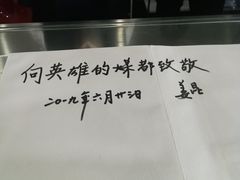 向英雄的煤都致敬
二〇一九年六月廿三日
姜昆